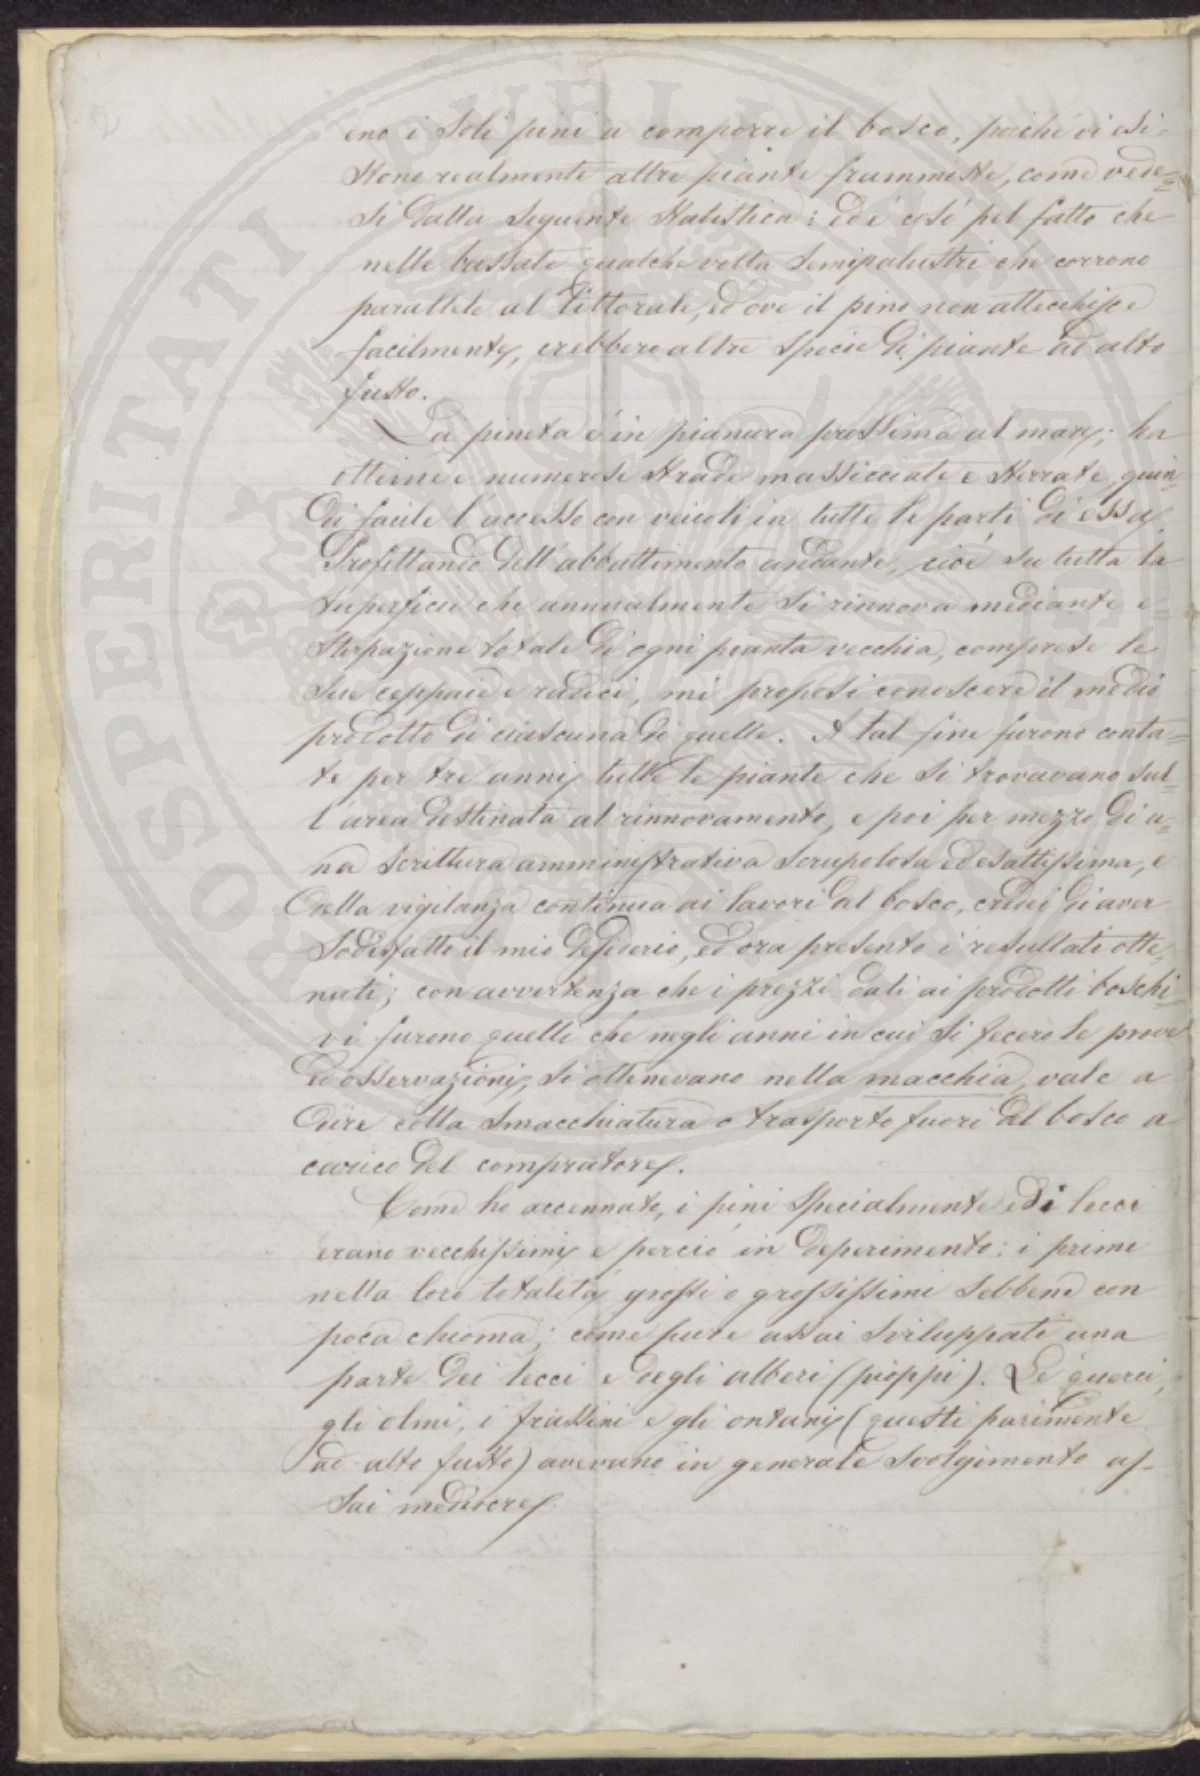 2
eno i soli pini a comporre il bosco, poiché vi esi-
stono realmente altre piante frammiste, come vede-
si dalla seguente statistica: ed é cosí pel fatto che
nelle bassate qualche volta semipalustri che corrono
parallele al littorale, ed ove il pino non attecchisce
facilmente, crebbero altre specie di piante ad alto
fusto.
La pineta é in pianura prossima al mare; ha
ottime e numerose strade massicciate e sterrate, quin-
di facile l'accesso con veicoli in tutte le parti di essa.
Profittando dell'abbattimento andante, cioé su tutta la
superficie che annualmente si rinnova mediante e-
stirpazione totale di ogni pianta vecchia, comprese le
sue ceppaie e radici, mi proposi conoscere il medio
prodotto di ciascuna di quelle. A tal fine furono conta-
te per tre anni tutte le piante che si trovavano sul-
l'area destinata al rinnovamento, e poi per mezzo di u-
na scrittura amministrativa scrupolosa ed esattissima, e
della vigilanza continua ai lavori del bosco, credei di aver
sodisfatto il mio desiderio, ed ora presento i resultati otte-
nuti; con avvertenza che i prezzi dati ai prodotti boschi-
vi furono quelli che negli anni in cui si fecero le prove
ed osservazioni, si ottenevano nella macchia, vale a
dire colla smacchiatura e trasporto fuori del bosco a
carico del compratore.
Come ho accennato, i pini specialmente ed i lecci
erano vecchissimi e perció in deperimento: i primi
nella loro totalitá grossi o grossissimi sebbene con
poca chioma; come pure assai sviluppati una
parte dei lecci e degli alberi (pioppi). Le querci,
gli olmi, i frassini e gli ontani (questi parimente
ad alto fusto) avevano in generale svolgimento as-
sai mediocre.
PROSPERITATI PVBLICAE AVGENDAE